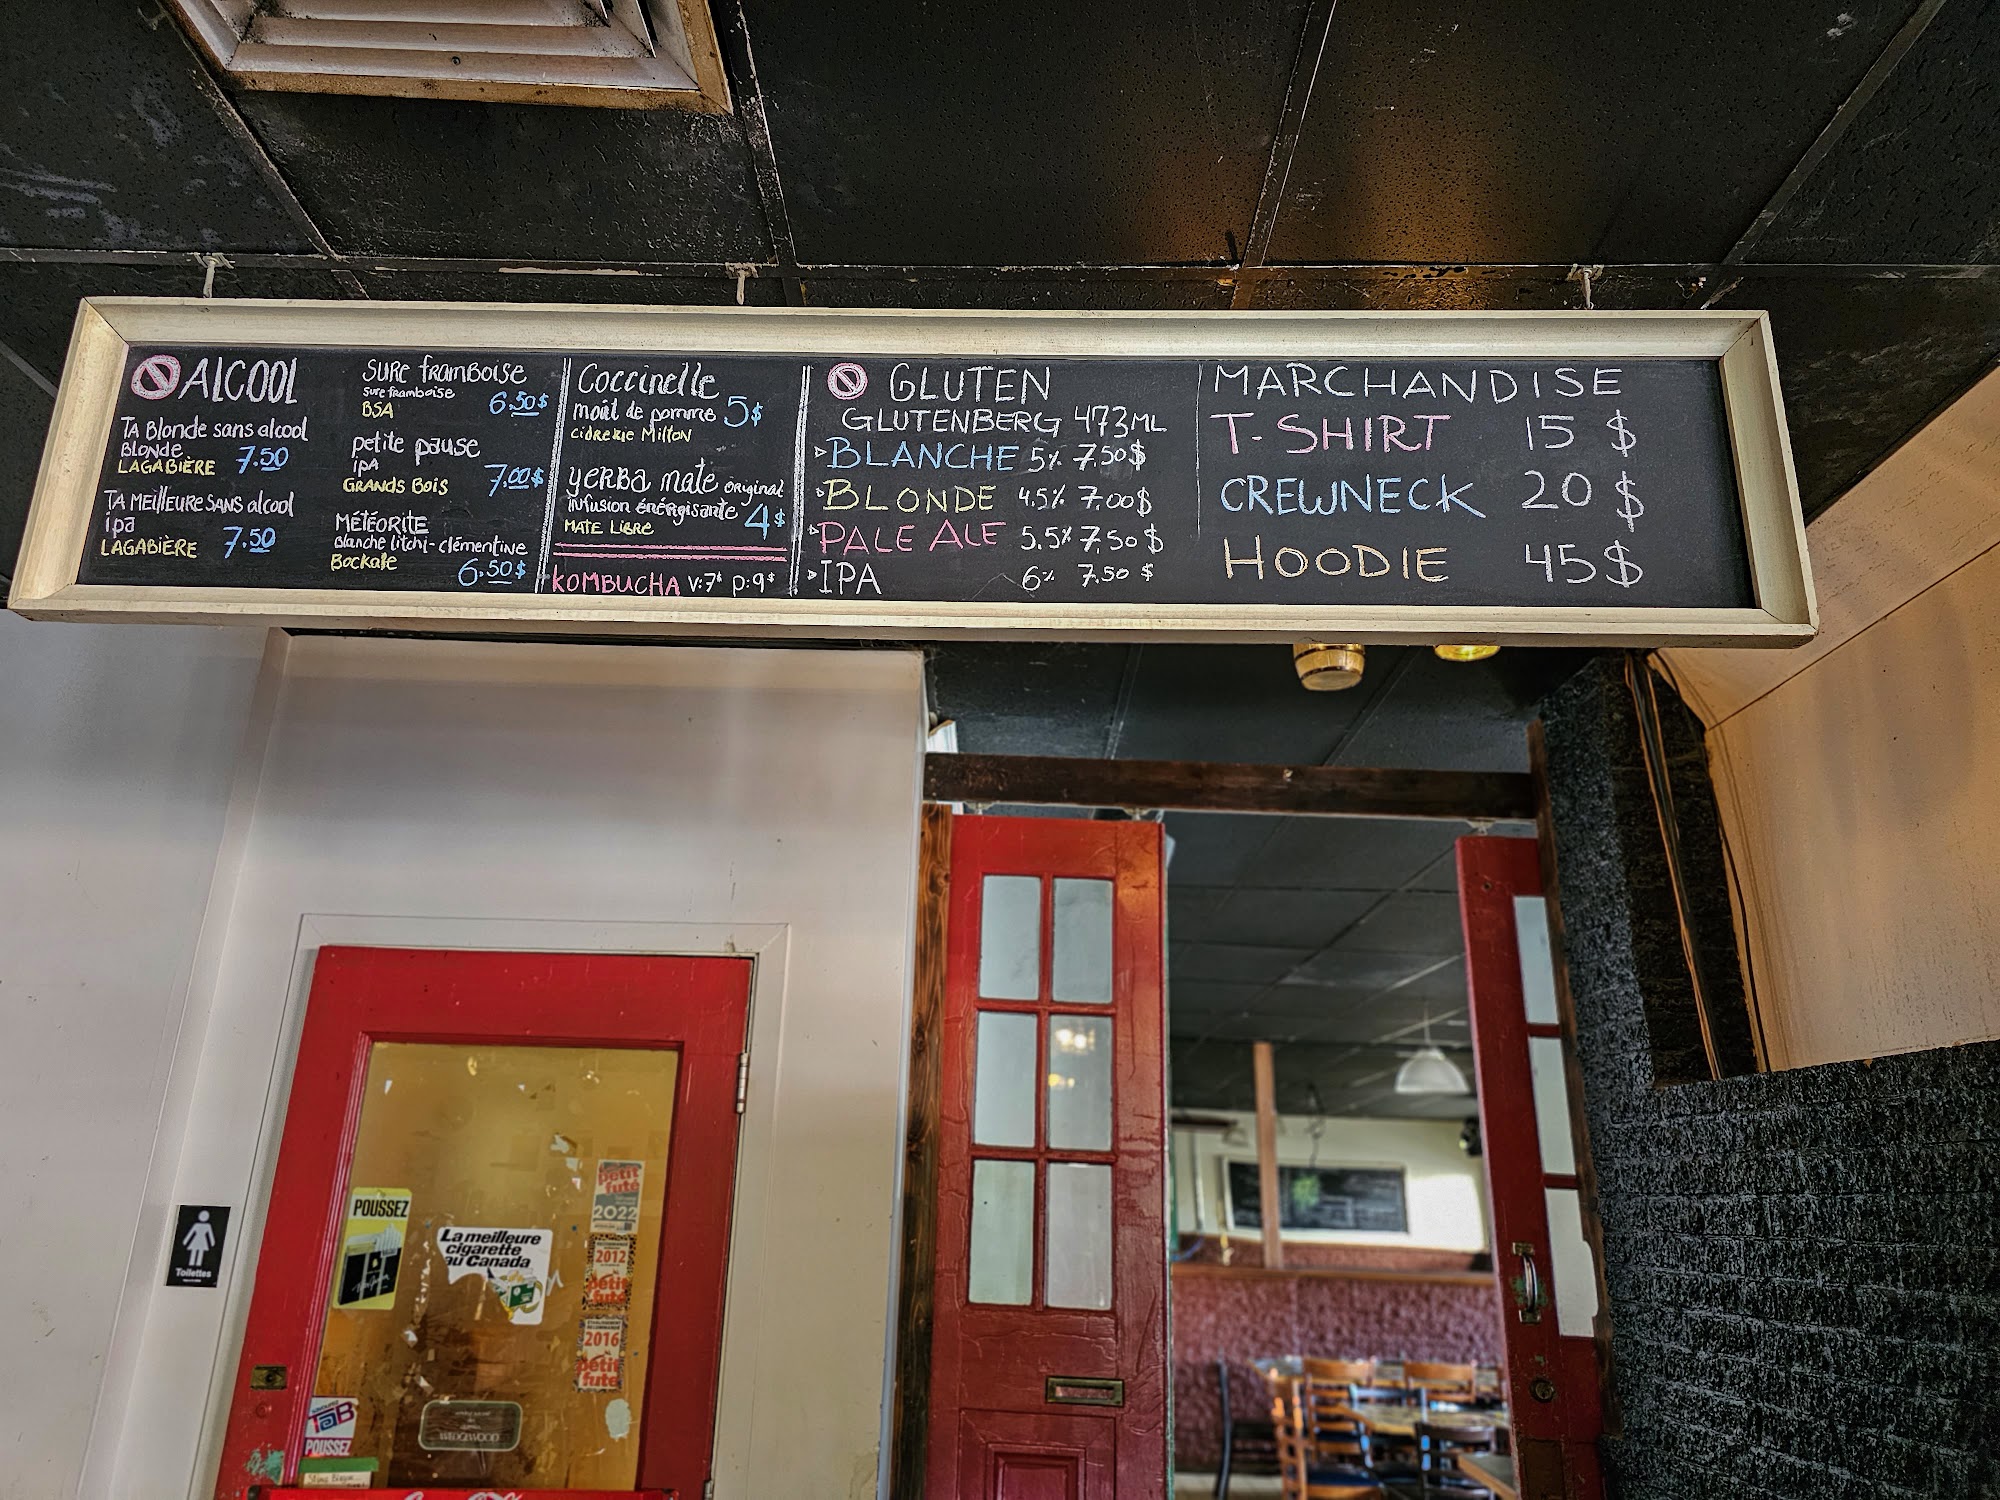 ALCOOL
TA Blonde sans alcool
BLONDE
LAGABIÈRE 7.50
TA MEILLEURE SANS alcool
ipa
LAGABIÈRE 7.50
SURE framboise
sure framboise
BSA 6.50$
petite pause
IPA
GRANDS BOIS 7.00$
MÉTÉORITE
Blanche litchi-clémentine
Bockale 6.50$
Coccinelle
moût de pomme 5$
cidrerie Milton
yerba mate original
infusion énergisante 4$
MATE LIBRE
KOMBUCHA V:7$ P:9$
GLUTEN
GLUTENBERG 473ML
BLANCHE 5% 7,50$
BLONDE 4.5% 7.00$
PALE ALE 5.5% 7,50$
IPA 6% 7.50$
MARCHANDISE
T-SHIRT 15$
CREWNECK 20$
HOODIE 45$
Toilettes
POUSSEZ
La meilleure
cigarette
au Canada
petit
futé
2022
2012
petit
futé
2016
petit
futé
TaB
POUSSEZ
WEDGWOOD